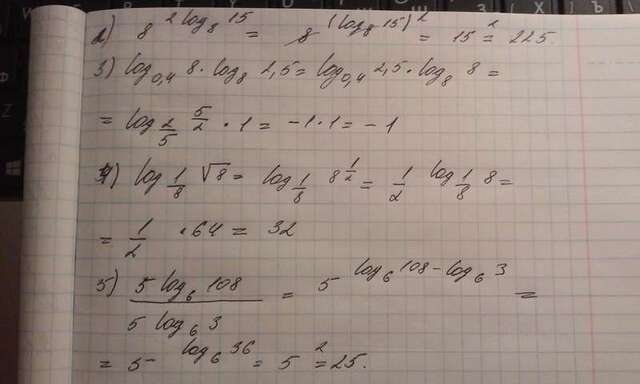 2) 8^{2 log_8 15} = 8^{(log_8 15)^2} = 15^2 = 225.
3) log_{0,4} 8 · log_8 2,5 = log_{0,4} 2,5 · log_8 8 =
= log_{2/5} 5/2 · 1 = -1 · 1 = -1
4) log_{1/8} √8 = log_{1/8} 8^{1/2} = 1/2 log_{1/8} 8 =
= 1/2 · 64 = 32
5) 5 log_6 108 / 5 log_6 3 = 5^{log_6 108 - log_6 3} =
= 5^{log_6 36} = 5^2 = 25.